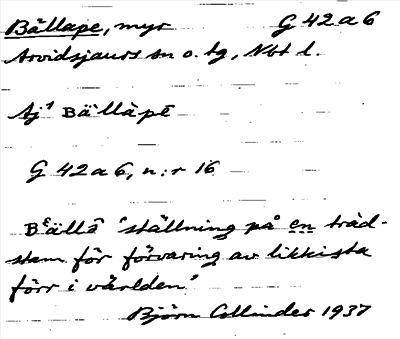 Bällape, myr G 42 a 6
Arvidsjaurs sn o. tg, Nbt l.
Aj¹ Bälläpē
G 42 a 6, n:r 16
Bᵋällᵃ̄ "ställning på en träd-
stam för förvaring av likkista
förr i världen"
Björn Collinder 1937